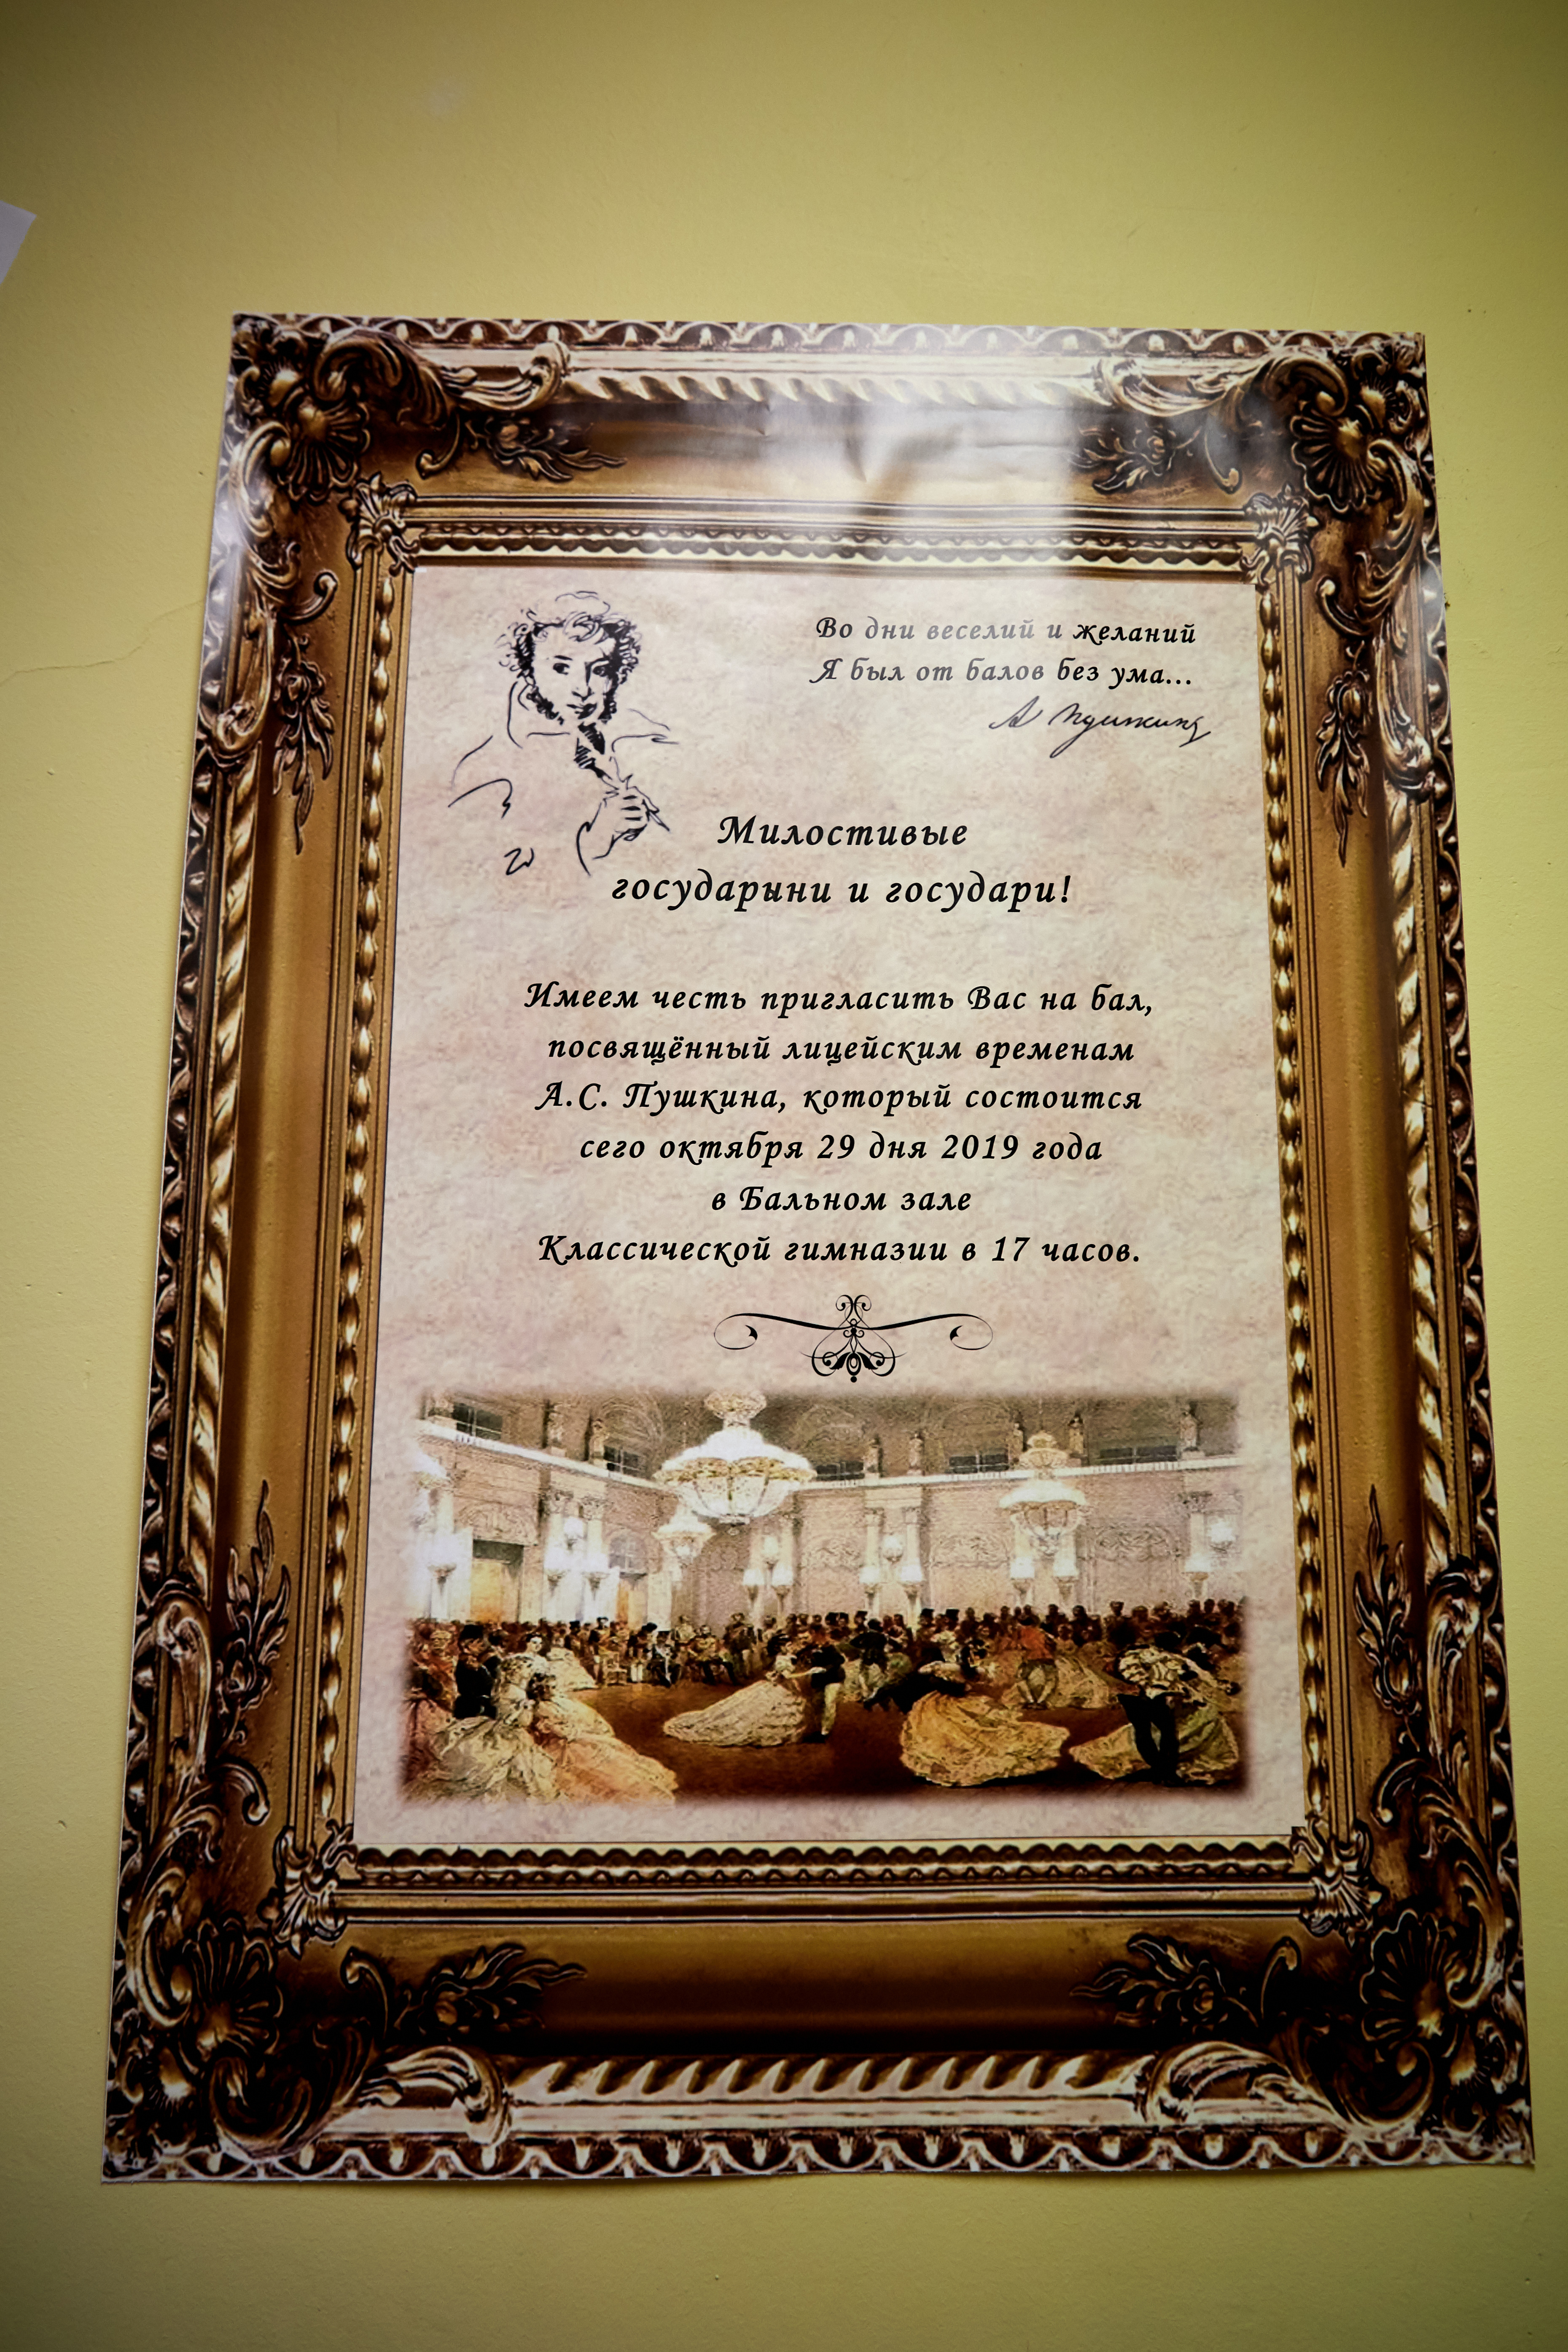 Во дни веселий и желаний
Я был от балов без ума...
А Пушкинъ
Милостивые
государыни и государи!
Имеем честь пригласить Вас на бал,
посвящённый лицейским временам
А.С. Пушкина, который состоится
сего октября 29 дня 2019 года
в Бальном зале
Классической гимназии в 17 часов.